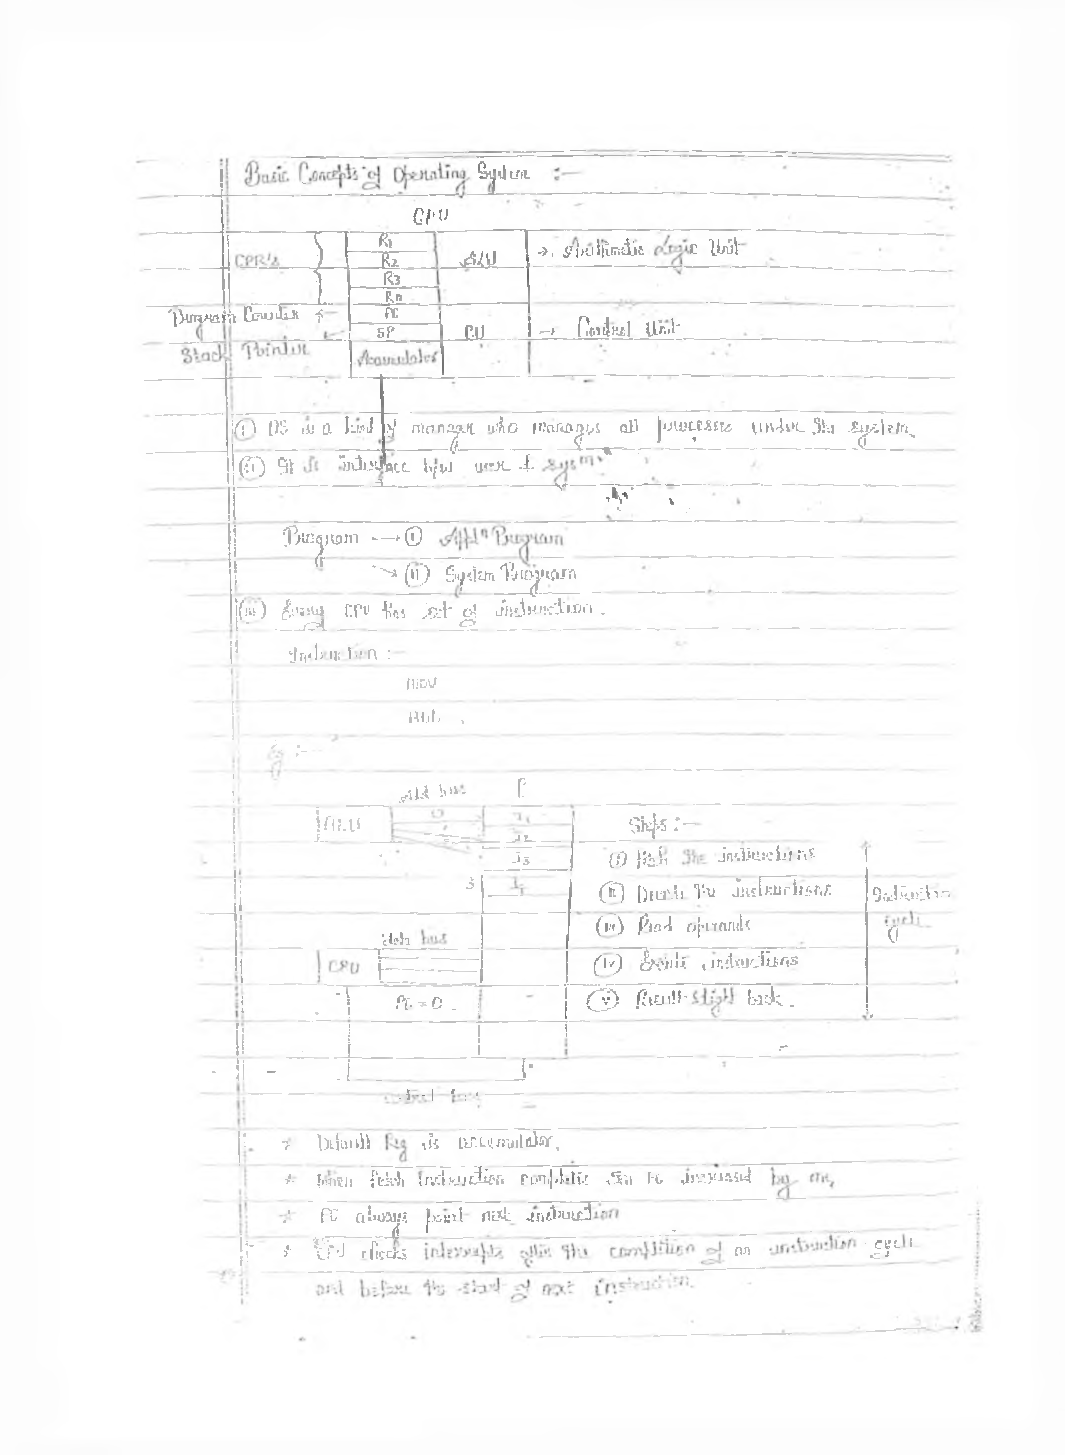 Basic Concepts of Operating System :-
CPU
GPR's R1 ALU → Arithmetic Logic Unit
R2
R3
Rn
Program Counter ← PC
Stack Pointer ← SP CU → Control Unit
Accumulator
(i) OS is a kind of manager who manages all processes under the system.
(ii) It is interface b/w user & system
Program → (i) Appln Program
→ (ii) System Program
(iii) Every CPU has set of instruction.
Instruction :-
MOV
Eg :-
Add bus
ALU 0 I1
I2
I3
3 I4
Steps :-
(i) Fetch the instructions
(ii) Decode the instructions
(iii) Read operands
(iv) Execute instructions
(v) Result back.
Instruction cycle
data bus
CPU
PC = 0
control bus
* Default Reg is accumulator.
* When fetch Instruction complete be increased by one,
* PC always point next instruction
* CPU checks interrupts after the completion of an instruction cycle
and before the start of next instruction.